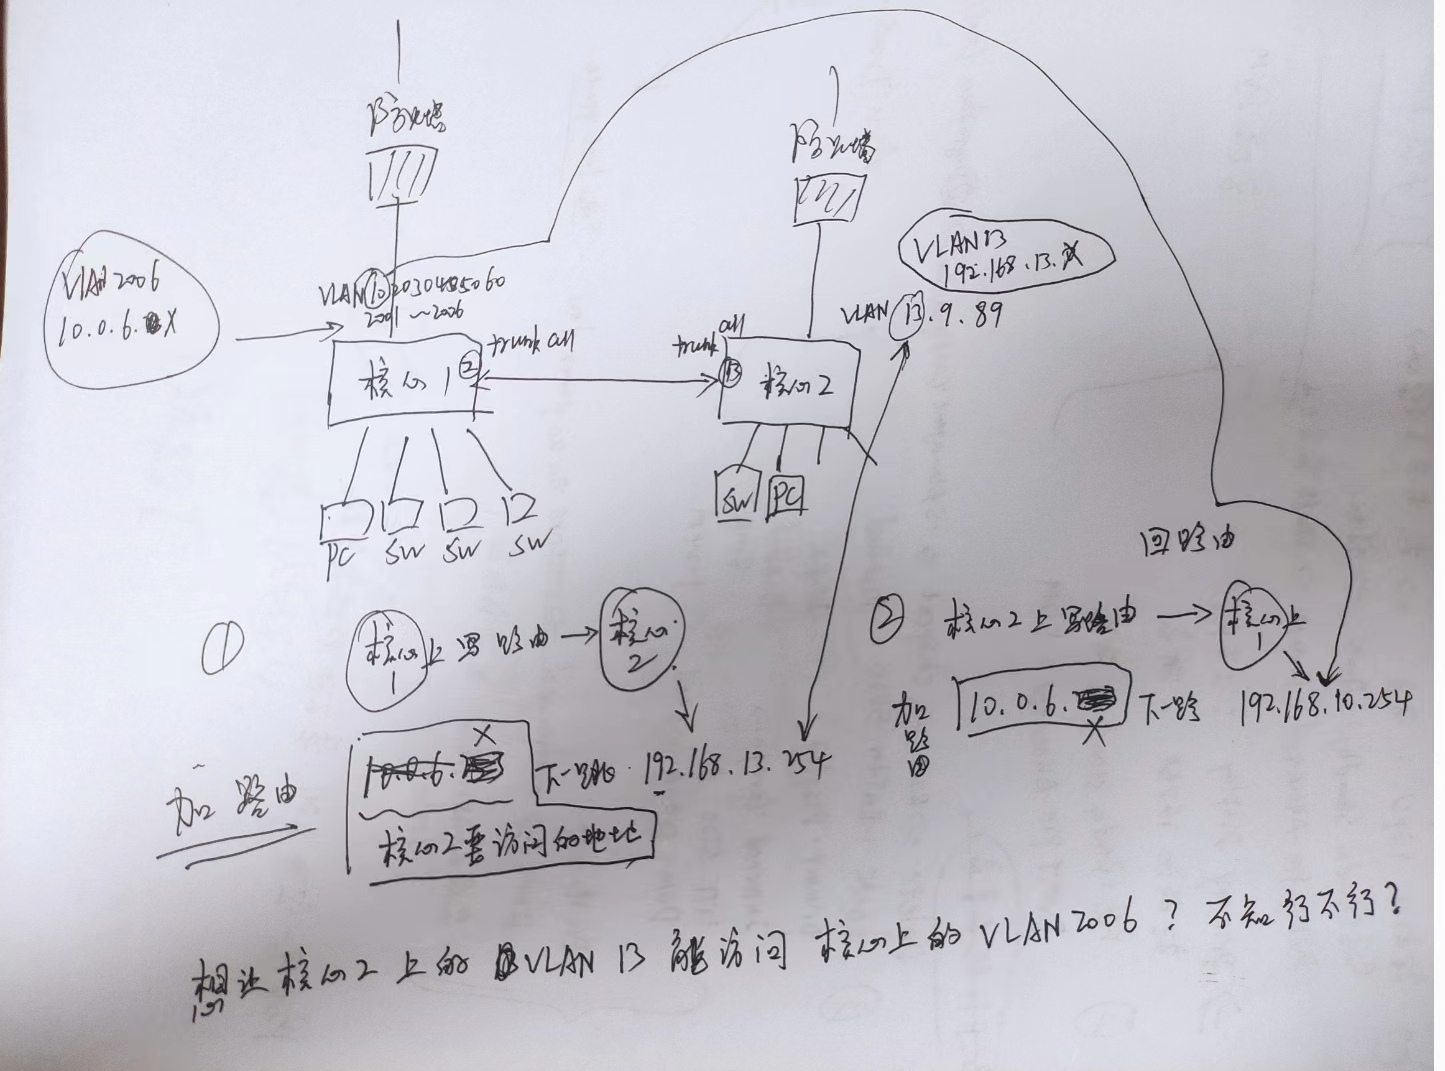 防火墙
防火墙
VLAN 2006
10.0.6.X
VLAN 10 20 30 40 50 60
2001~2006
VLAN 13
192.168.13.X
VLAN 13.9.89
trunk all
trunk all
核心1
②
⑬
核心2
PC
SW
SW
SW
SW
PC
回路由
① 核心1上写路由→核心2
加路由
10.0.6.
X
下一跳 192.168.13.254
核心2要访问的地址
② 核心2上写路由→核心1上
加路由
10.0.6.
X
下一跳 192.168.10.254
想让核心2上的VLAN 13能访问核心上的VLAN2006?不知行不行?